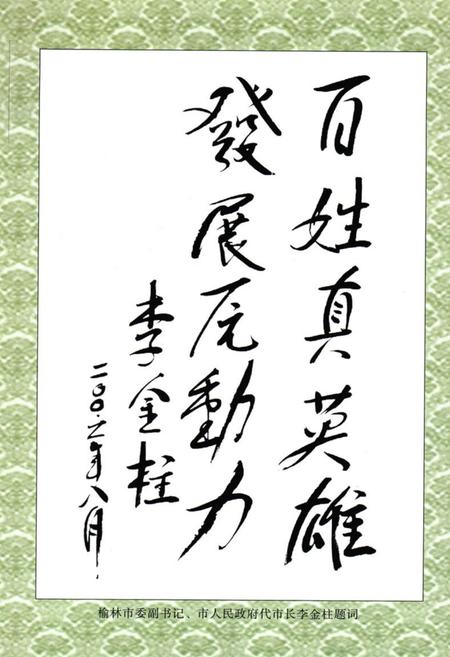 百姓真英雄
發展原動力
李金柱
二〇〇六年八月
榆林市委副书记、市人民政府代市长李金柱题词